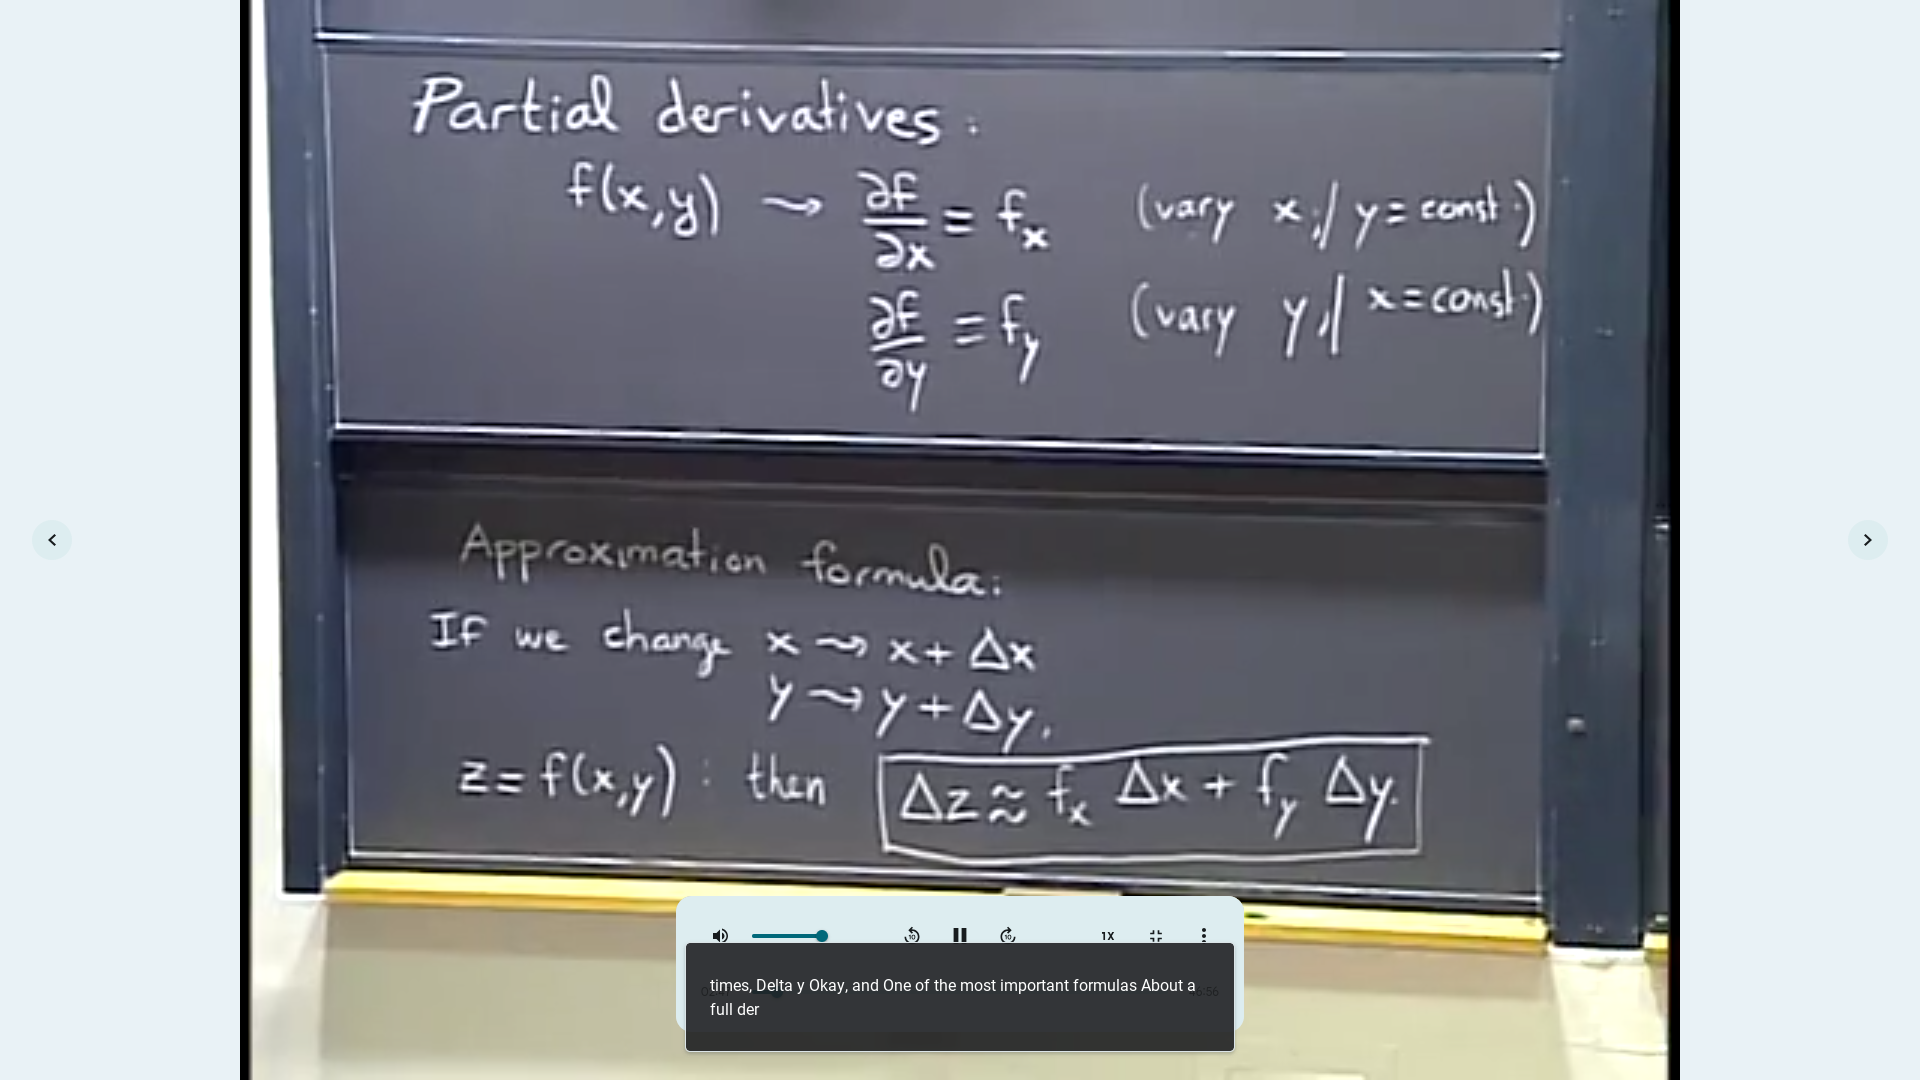 Partial derivatives:
f(x,y) ⇝ ∂f/∂x = f_x (vary x, / y = const.)
∂f/∂y = f_y (vary y, / x = const.)
Approximation formula:
If we change x ⇝ x + Δx
y ⇝ y + Δy,
z = f(x,y) : then Δz ≈ f_x Δx + f_y Δy.
10
10
1X
times, Delta y Okay, and One of the most important formulas About a
full der